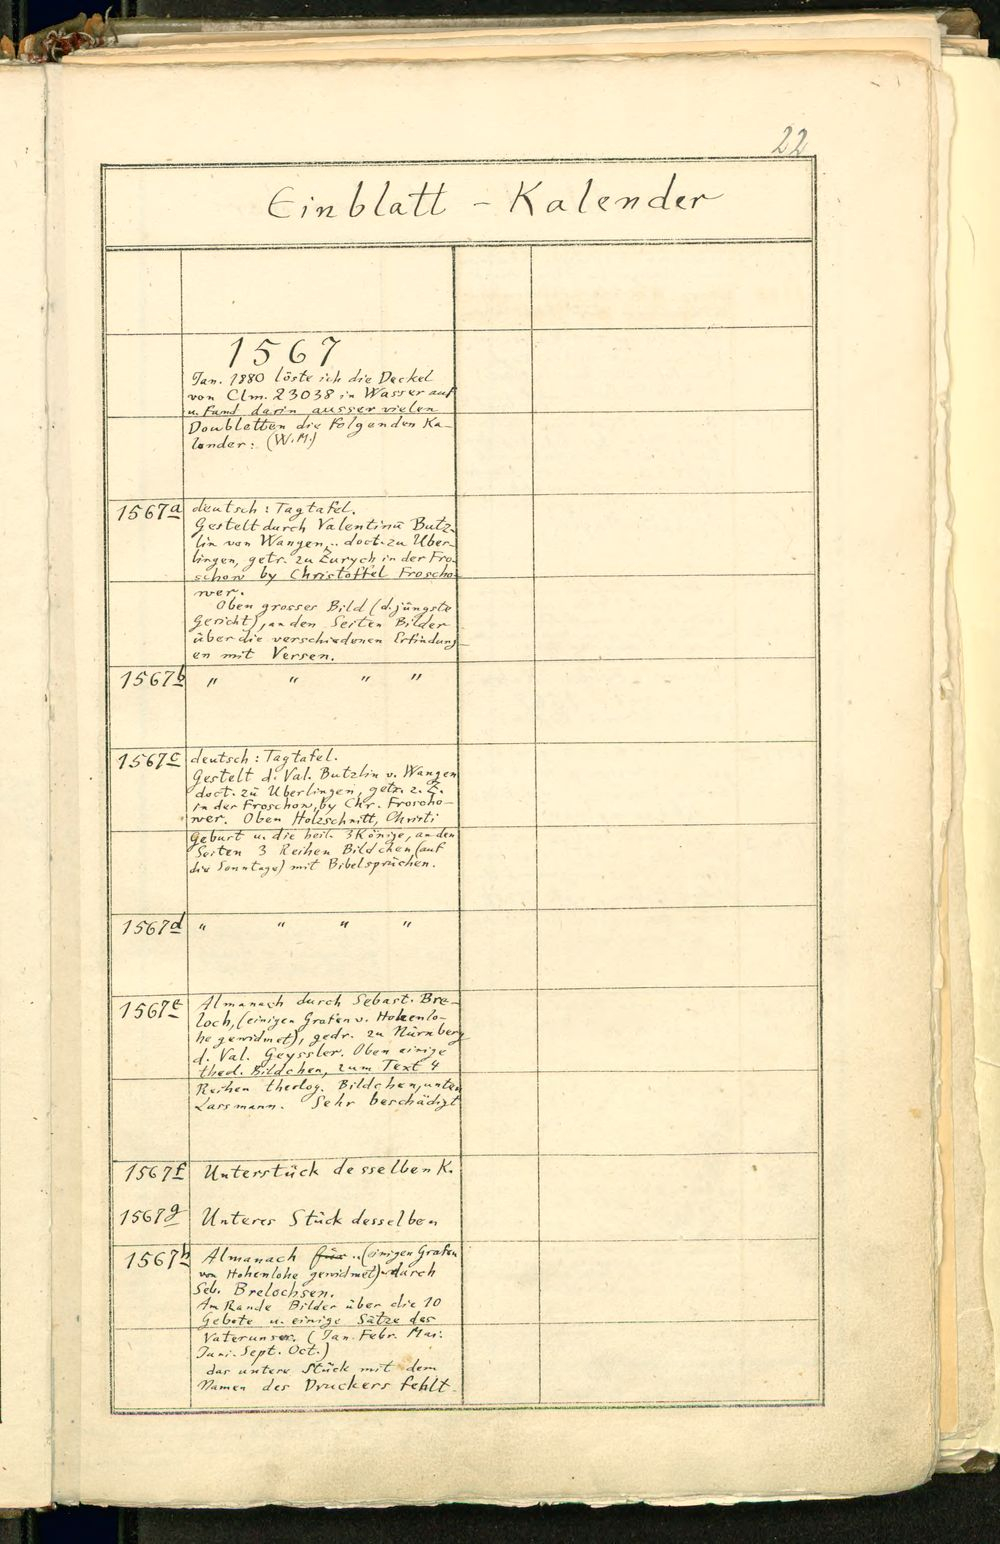 22
Einblatt - Kalender
1567
Jan. 1880 löste ich die Deckel
von Clm. 23038 in Wasser auf
u. fand darin ausser vielen
Doubletten die folgenden Ka-
lender: (W.M.)
1567a deutsch: Tagtafel.
Gestelt durch Valentinū Butz-
lin von Wangen, .. doct. zu Uber-
lingen, getr. zu Zurych in der Fro-
schow by Christoffel Froscho-
wer.
Oben grosser Bild (d. jüngste
Gericht), an den Seiten Bilder
über die verschiedenen Erfindung-
en mit Versen.
1567b " " " "
1567c deutsch: Tagtafel.
Gestelt d. Val. Butzlin v. Wangen
doct. zü Uberlingen, getr. z. Z.
in der Froschow, by Chr. Froscho-
wer. Oben Holzschnitt, Christi
Geburt u. die heil. 3 Könige, an den
Seiten 3 Reihen Bildchen (auf
die Sonntage) mit Bibelsprüchen.
1567d " " " "
1567e Almanach durch Sebast. Bre-
loch, (einigen Grafen v. Hohenlo-
he gewidmet), gedr. zu Nürnberg
d. Val. Geyssler. Oben einige
theol. Bildchen, zum Text 4
Reihen theolog. Bildchen, unten
Lassmann. Sehr beschädigt
1567f Unterstück desselben K.
1567g Unteres Stück desselben
1567h Almanach für .. (einigen Grafen
von Hohenlohe gewidmet) durch
Seb. Brelochsen.
Am Rande Bilder über die 10
Gebote u. einige Sätze des
Vaterunser. (Jan. Febr. Mai.
Juni. Sept. Oct.)
das untere Stück mit dem
Namen des Druckers fehlt.